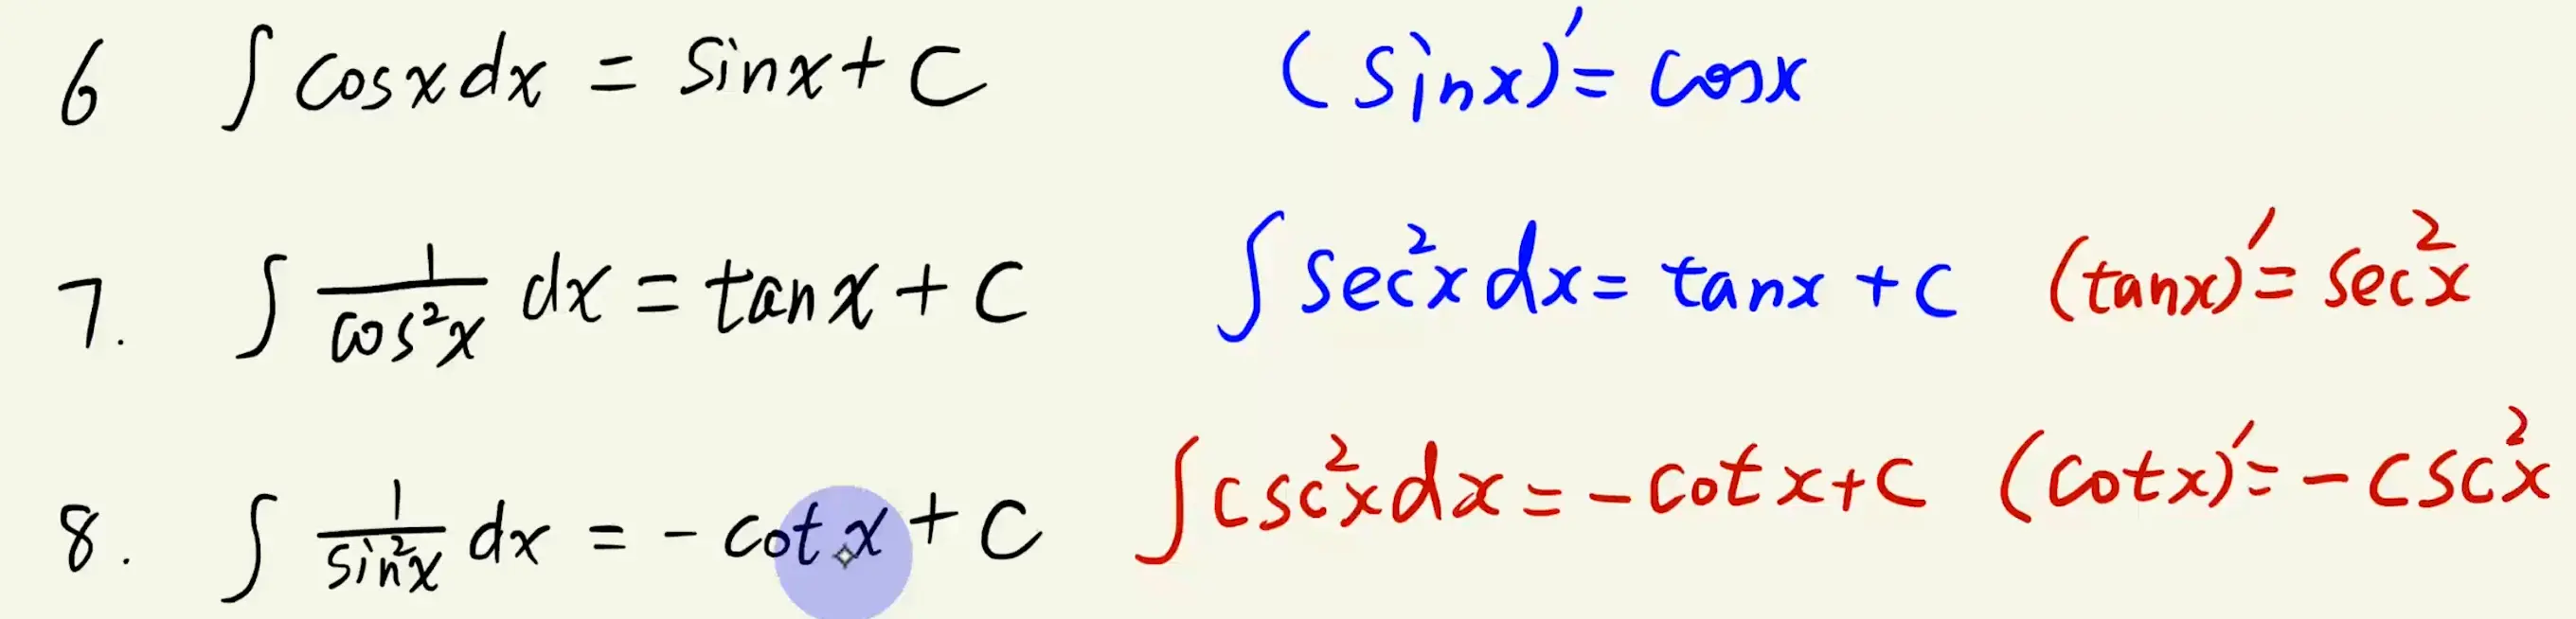 6 ∫ cosx dx = sinx + C (sinx)′ = cosx
7. ∫ 1/cos²x dx = tanx + C ∫ sec²x dx = tanx + C (tanx)′ = sec²x
8. ∫ 1/sin²x dx = - cotx + C ∫ csc²x dx = - cotx + C (cotx)′ = - csc²x